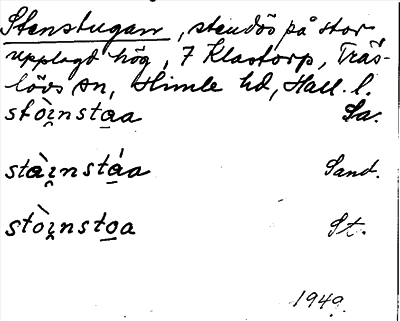 Stenstugan, stendös på stor
upplagd hög, 7 Klastorp, Träs-
lövs sn, Himle hd, Hall. l.
stòi̯nsta̲a Sa.
stài̯nstá̲a Sand.
stòi̯nsto̲a St.
1949.